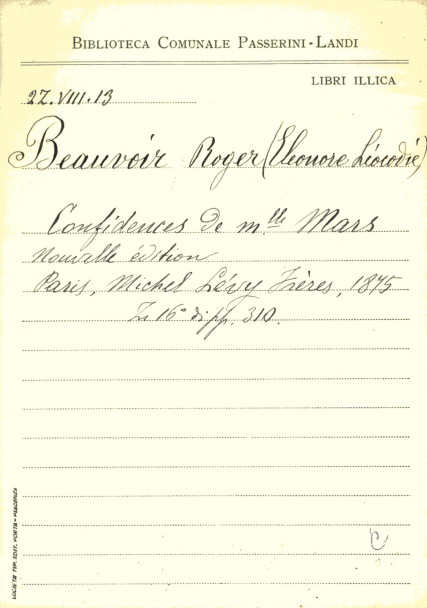 BIBLIOTECA COMUNALE PASSERINI-LANDI
LIBRI ILLICA
2Z.VIII.13
Beauvoir Roger (Eleonore Léocadie)
Confidences de mlle Mars
Nouvelle édition
Paris, Michel Lévy Frères, 1875
16° di pp. 310.
SOCIETÀ TIP. EDIT. PORTA - PIACENZA
C